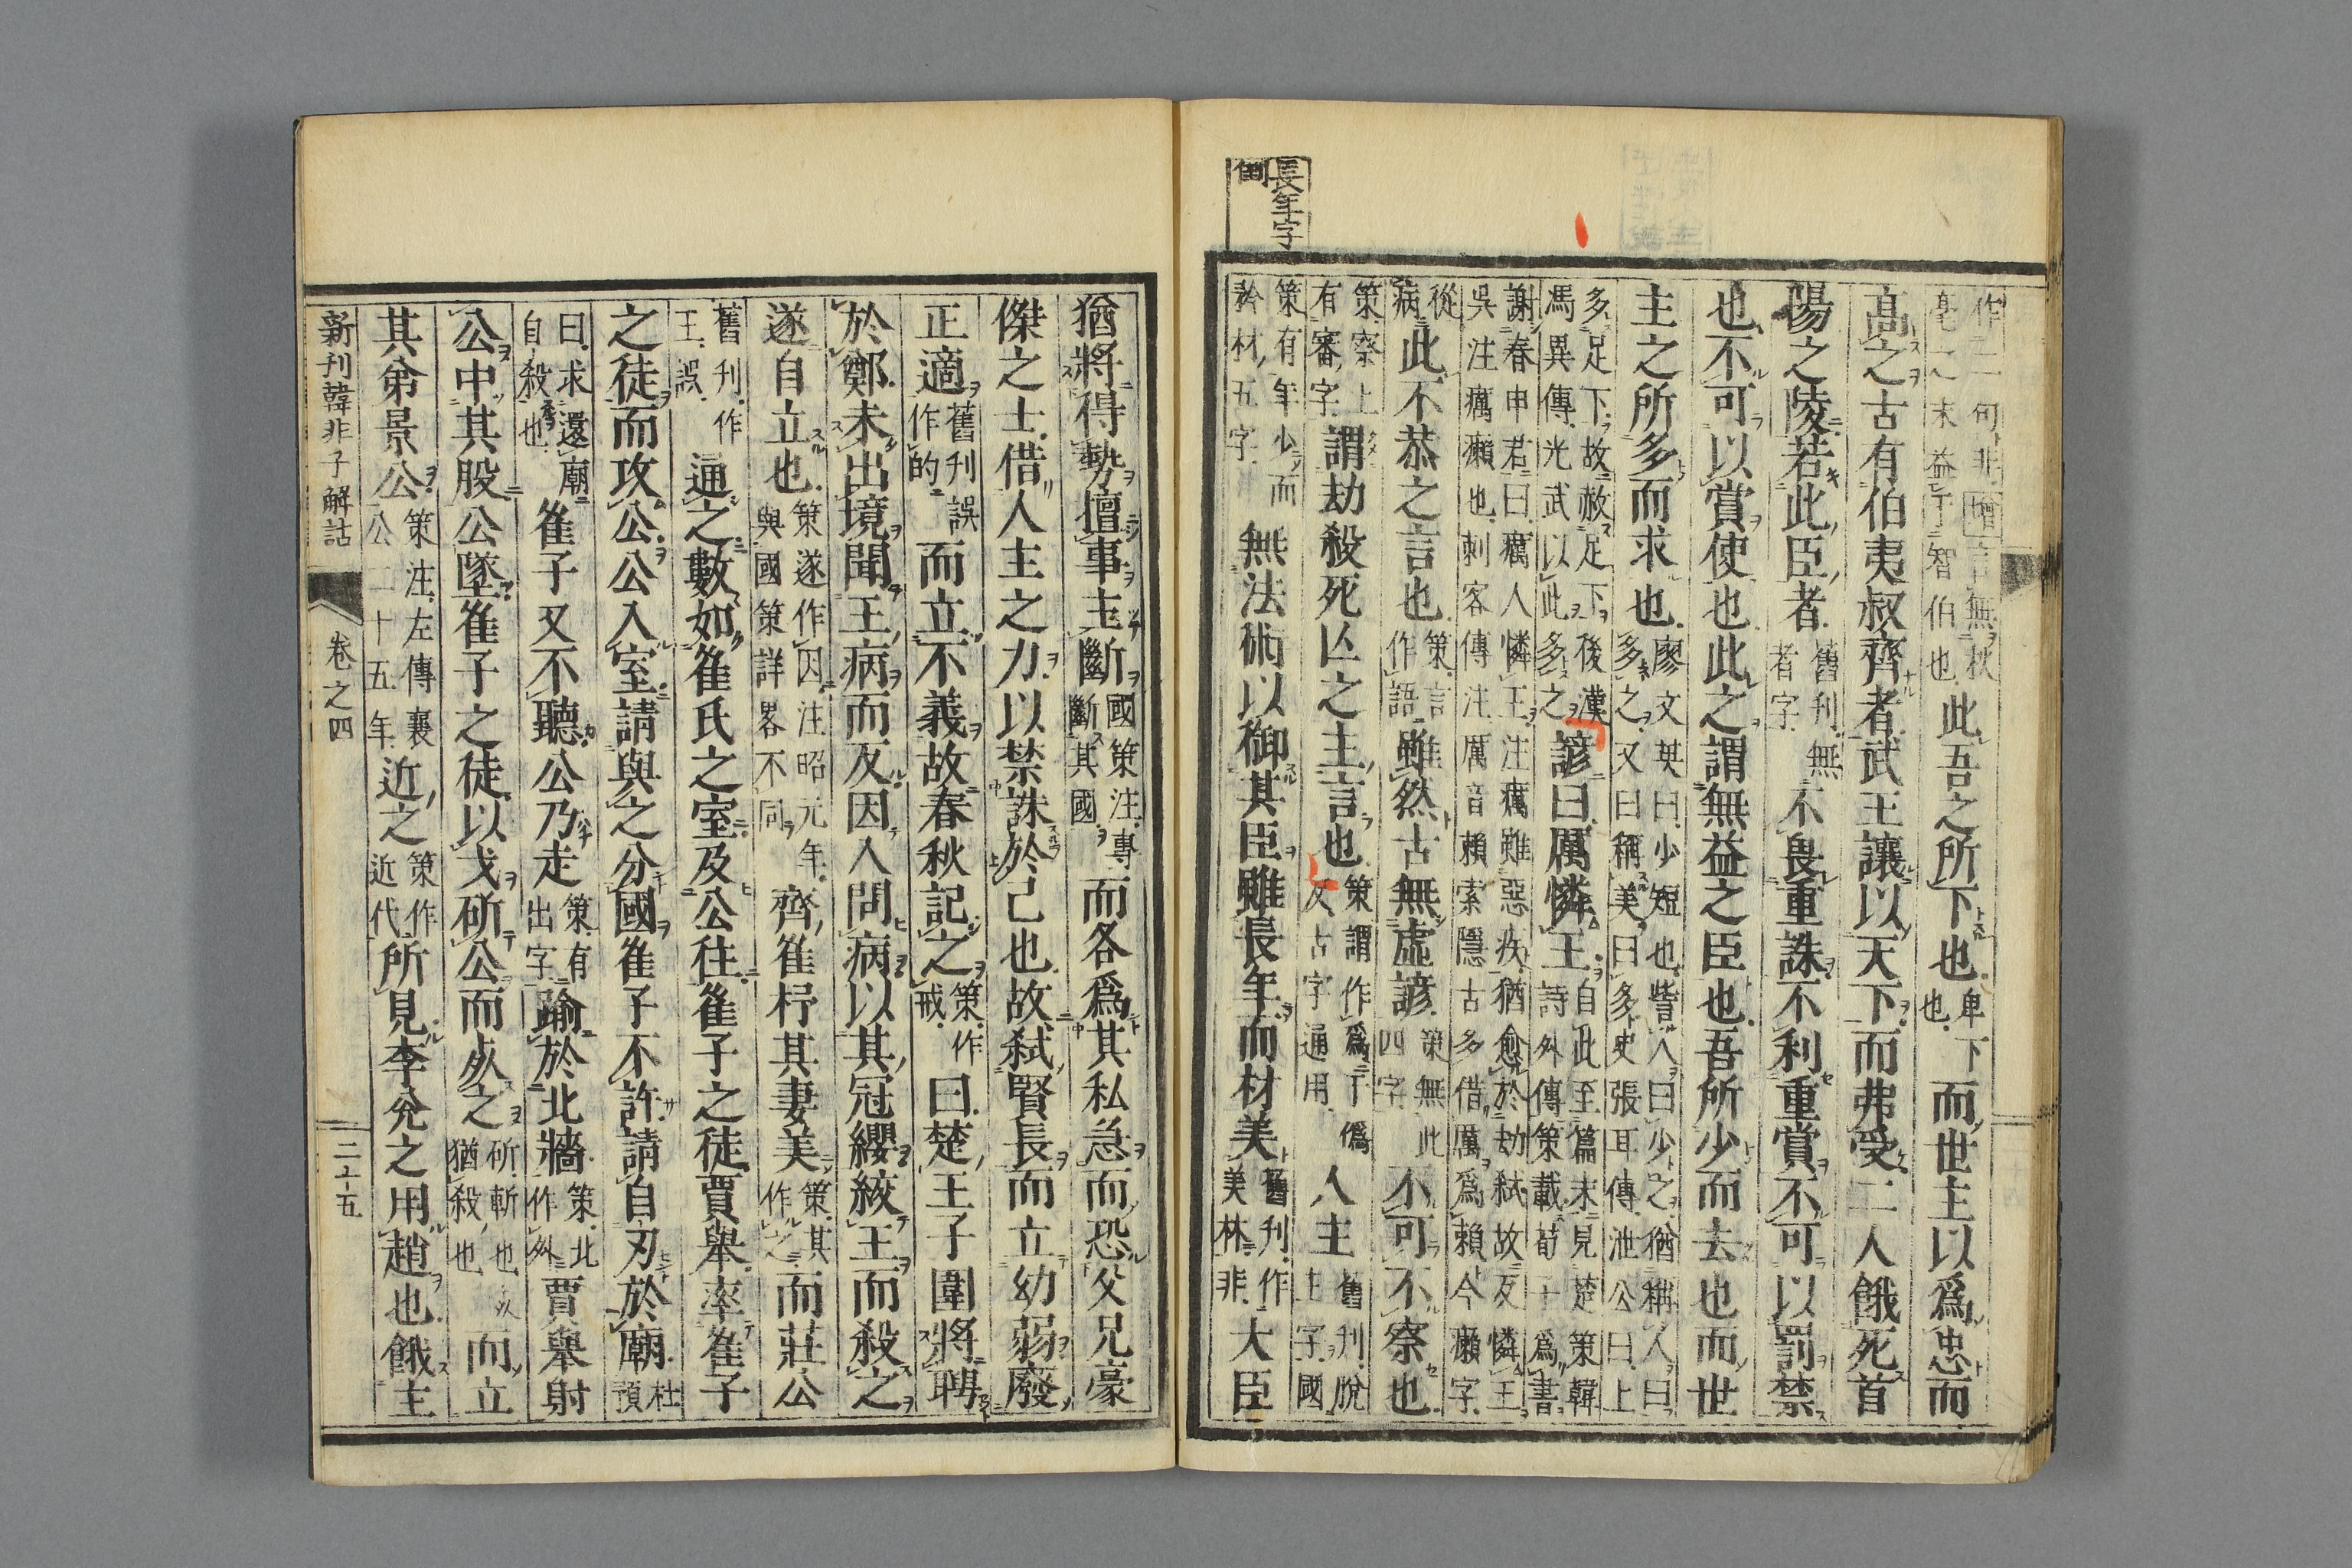 長年字倒
作二句非增言無秋
毫之末益于智伯也此吾之所下也卑下也而世主以爲忠而
高之古有伯夷叔齊者武王讓以天下而弗受二人餓死首
陽之陵若此臣者舊刊無者字不畏重誅不利重賞不可以罰禁
也不可以賞使也此之謂無益之臣也吾所少而去也而世
主之所多而求也廖文英曰少短也訾人曰少之猶稱人曰多之又曰稱美曰多史張耳傳泄公曰上
多足下故赦足下後漢馮異傳光武以此多之諺曰厲憐王自此至篇末見楚策韓詩外傳策載荀子爲書
謝春申君曰癘人憐王注癘雖惡疾猶愈於劫弑故反憐王吳注癘癩也刺客傳注厲音賴索隱古多借厲爲賴今癩字
從病此不恭之言也策言作語雖然古無虛諺策無此四字不可不察也
策察上有審字謂劫殺死亾之主言也策謂作爲于僞反古字通用人主舊刊脫主字國
策有年少而矜材五字無法術以御其臣雖長年而材美舊刊作美林非大臣
猶將得勢擅事主斷國策注專斷其國而各爲其私急而恐父兄豪
傑之士借人主之力以禁誅於己也故弑賢長而立幼弱廢
正適舊刊誤作的而立不義故春秋記之策作戒曰楚王子圍將聘
於鄭未出境聞王病而反因入問病以其冠纓絞王而殺之
遂自立也策遂作因注昭元年與國策詳畧不同齊崔杼其妻美策其作之而莊公
舊刊作王誤通之數如崔氏之室及公往崔子之徒賈舉率崔子
之徒而攻公公入室請與之分國崔子不許請自刃於廟杜預
曰求還廟自殺也崔子又不聽公乃走策有出字踰於北牆策北作外賈舉射
公中其股公墜崔子之徒以戈斫公而死之斫斬也死猶殺也而立
其弟景公策注左傳襄公二十五年近之策作近代所見李兌之用趙也餓主
新刊韓非子解詁 卷之四 二十五